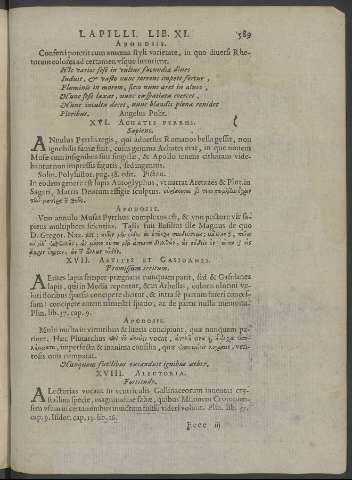 LAPILLI. LIB. XI. 589
APODOSIS.
Conferri poterit cum amœna styli varietate, in quo diversi Rhe-
torum colores ad certamen usque luxuriant.
Hic varios sese in vultus facundia dives
Induit, & vasto nunc torrens impete fertur,
Fluminis in morem, sicco nunc aret in alveo,
Nunc sese laxat, nunc castigata coercet,
Nunc inculta decet, nunc blandis plena renidet
Floribus. Angelus Polit.
XVI. ACHATES PYRRHI.
Sapiens.
ANnulus Pyrrhi regis, qui adversus Romanos bella gessit, non
ignobilis famæ fuit, cuius gemma Achates erat, in quo novem
Musæ cum insignibus suis singulæ, & Apollo tenens citharam vide-
bantur non impressis figuris, sed ingenitis.
Solin. Polyhistor. pag. 18. edit. Pictau.
In eodem genere est lapis Autoglyphus, ut narrat Aretazes & Plut. in
Sagari, Matris Deorum effigie sculptus.
APODOSIS.
Vno annulo Musas Pyrrhus complexus est, & uno pectore vir sa-
piens multiplices scientias. Talis fuit Basilius ille Magnus de quo
D. Gregor. Naz.
XVII. ASPILATES ET GASIDANES.
Promissum irritum.
AEtites lapis semper prægnans nunquam parit, sed & Gasidanes
lapis, qui in Media reperitur, & in Arbelis, coloris olorini ve-
luti floribus sparsis concipere dicitur, & intra se partum fateri concus-
sum: concipere autem trimestri spatio, ac de partu nulla memoria.
Plin. lib. 37. cap. 9.
APODOSIS.
Multi multa in virtutibus & literis concipiunt, quæ nunquam pa-
riunt. Hæc Plutarchus vocat,
imperfecta & inanima consilia, quæ ven-
tosis ovis comparat.
Nunquam futilibus excanduit ignibus æther.
XVIII. ALECTORIA.
Fortitudo.
ALectorias vocant in ventriculis Gallinaceorum inventas cry-
stallina specie, magnitudine fabæ, quibus Milonem Crotonien-
sem usum in certaminibus invictum fuisse videri volunt. Plin. lib. 37.
cap. 9. Isidor. cap. 13. lib. 16.
Eeee iij